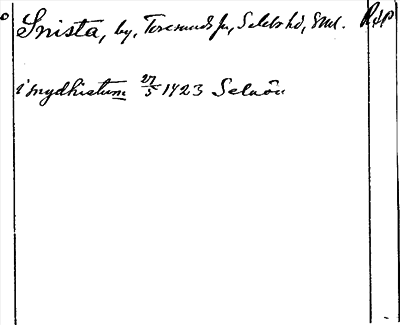 Snista, by, Toresunds sn, Selebo hd, Sml. RAP
i snydhistum 27/5 1423 Selaön